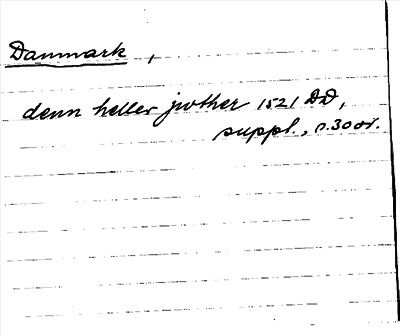 Danmark,
denn heller jother 1521 DD,
suppl., s. 30 or.